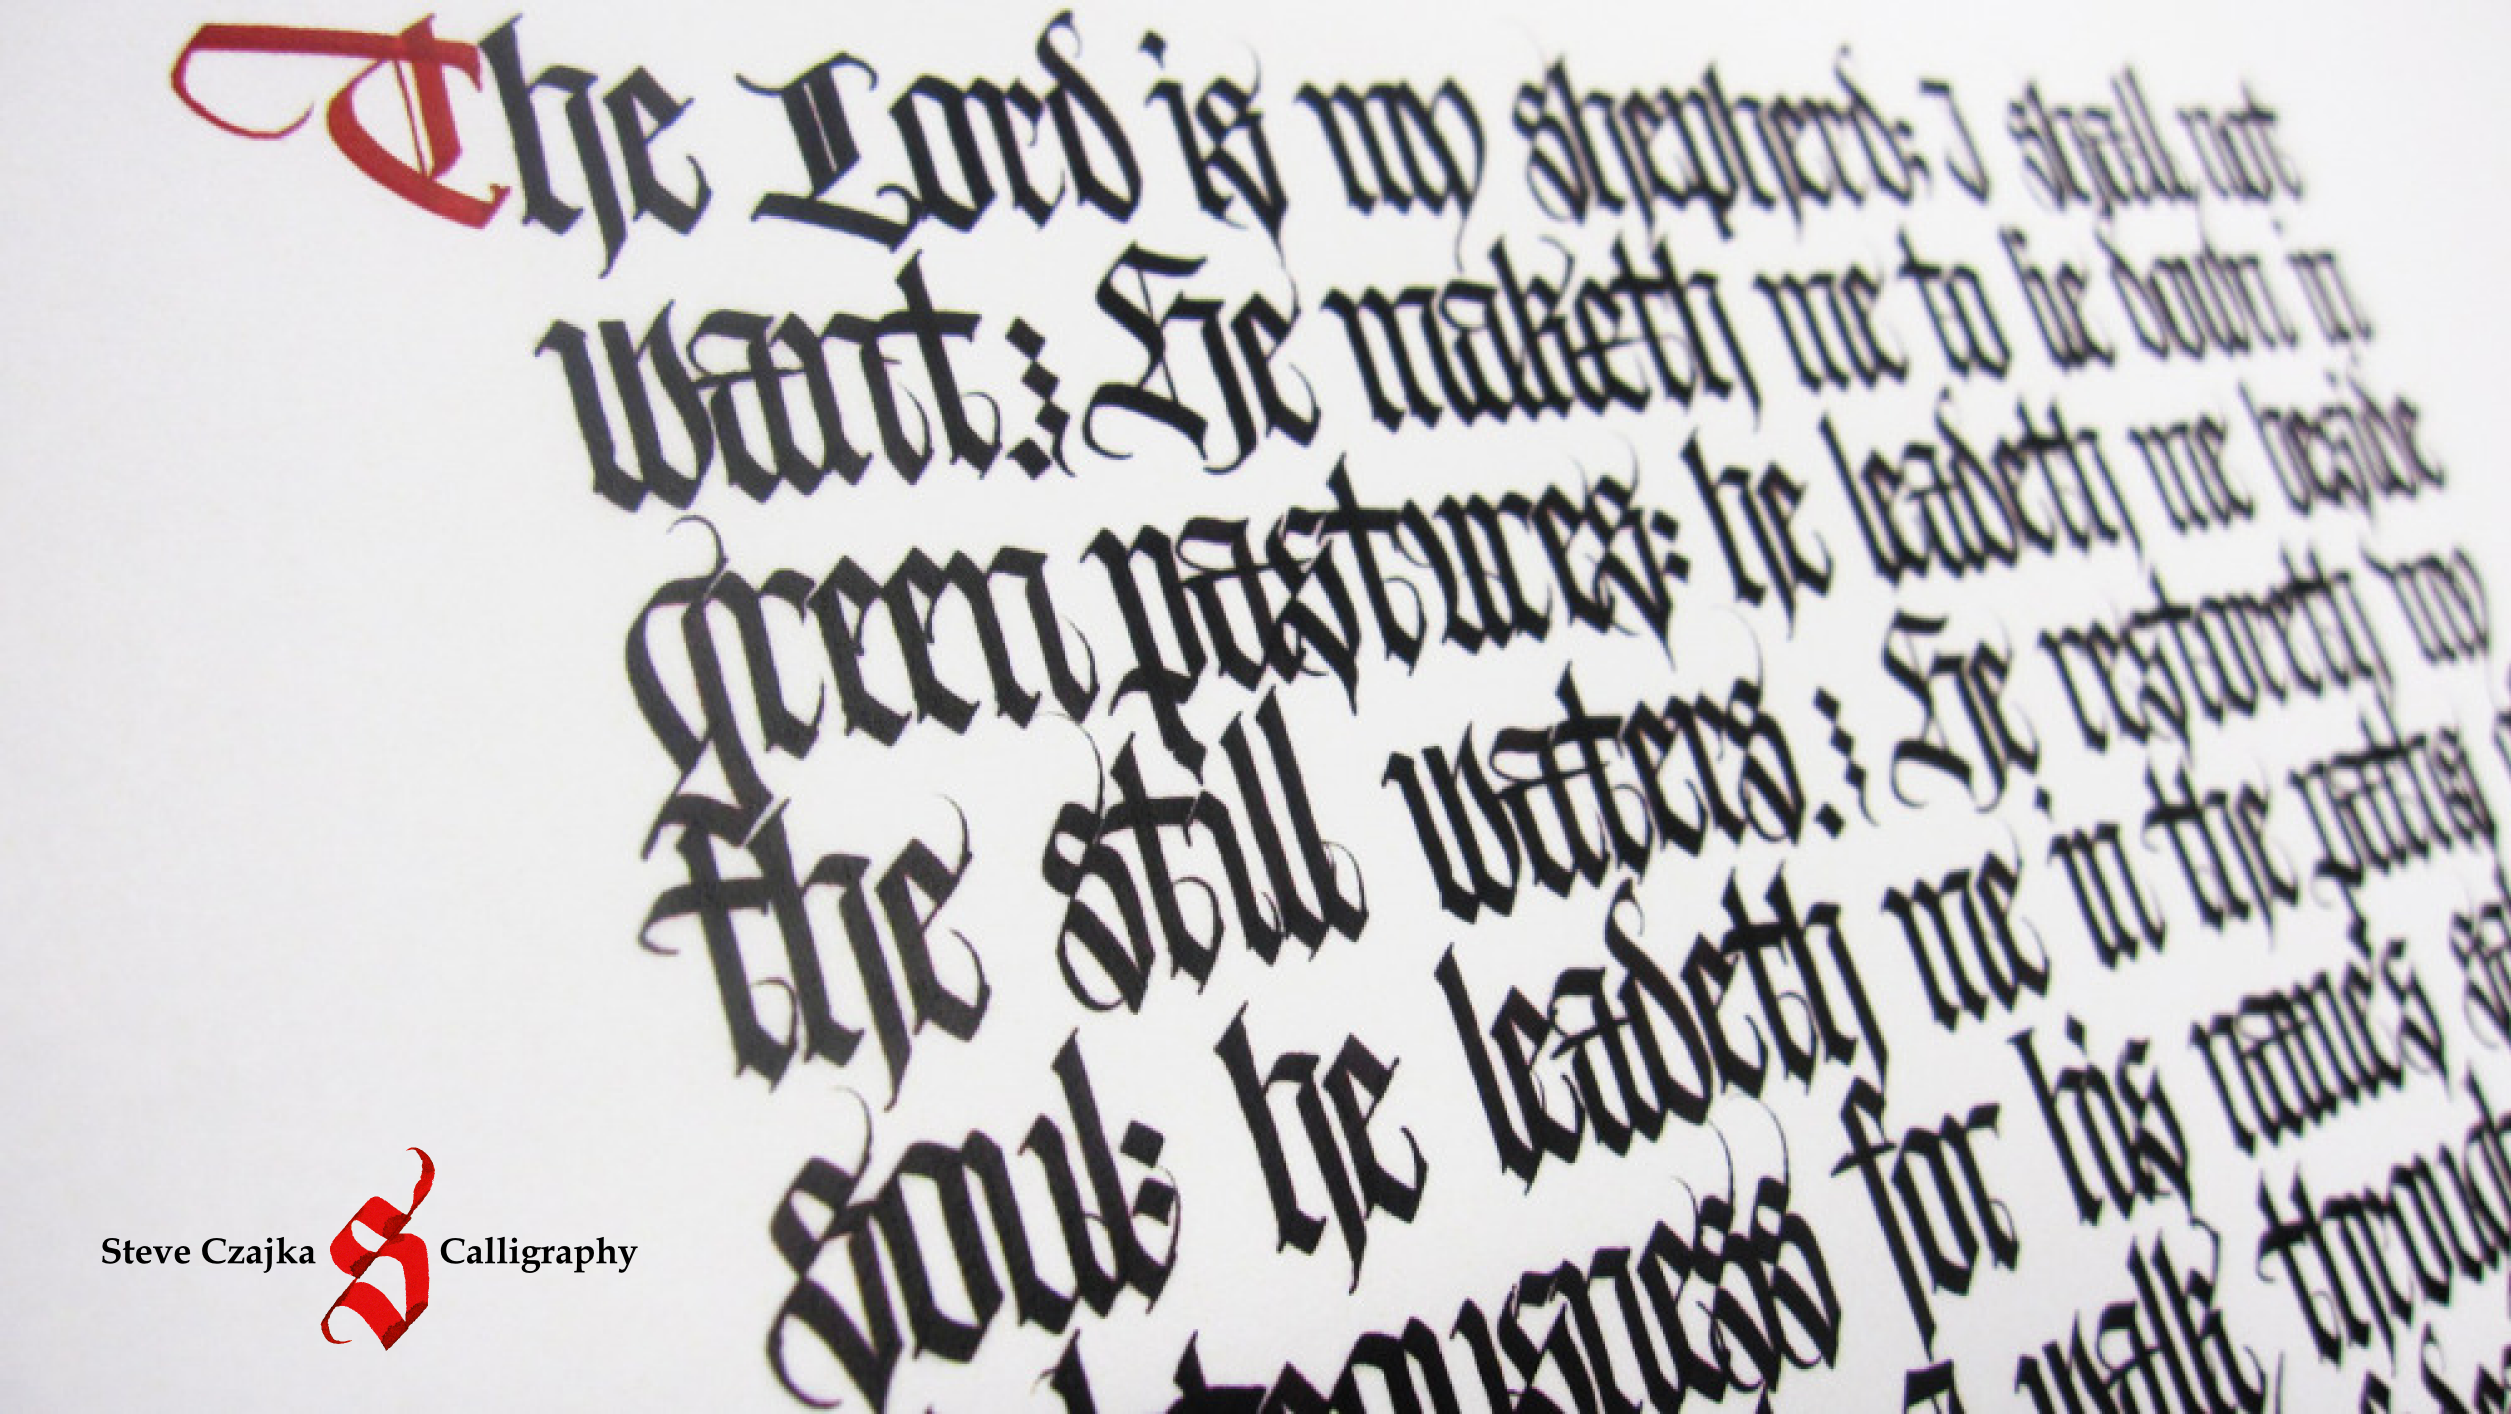 The Lord is my shepherd: I shall not
want: He maketh me to lie down in
green pastures: he leadeth me beside
the still waters: He restoreth my
soul: he leadeth me in the paths
for his name's
walk through
Steve Czajka S Calligraphy